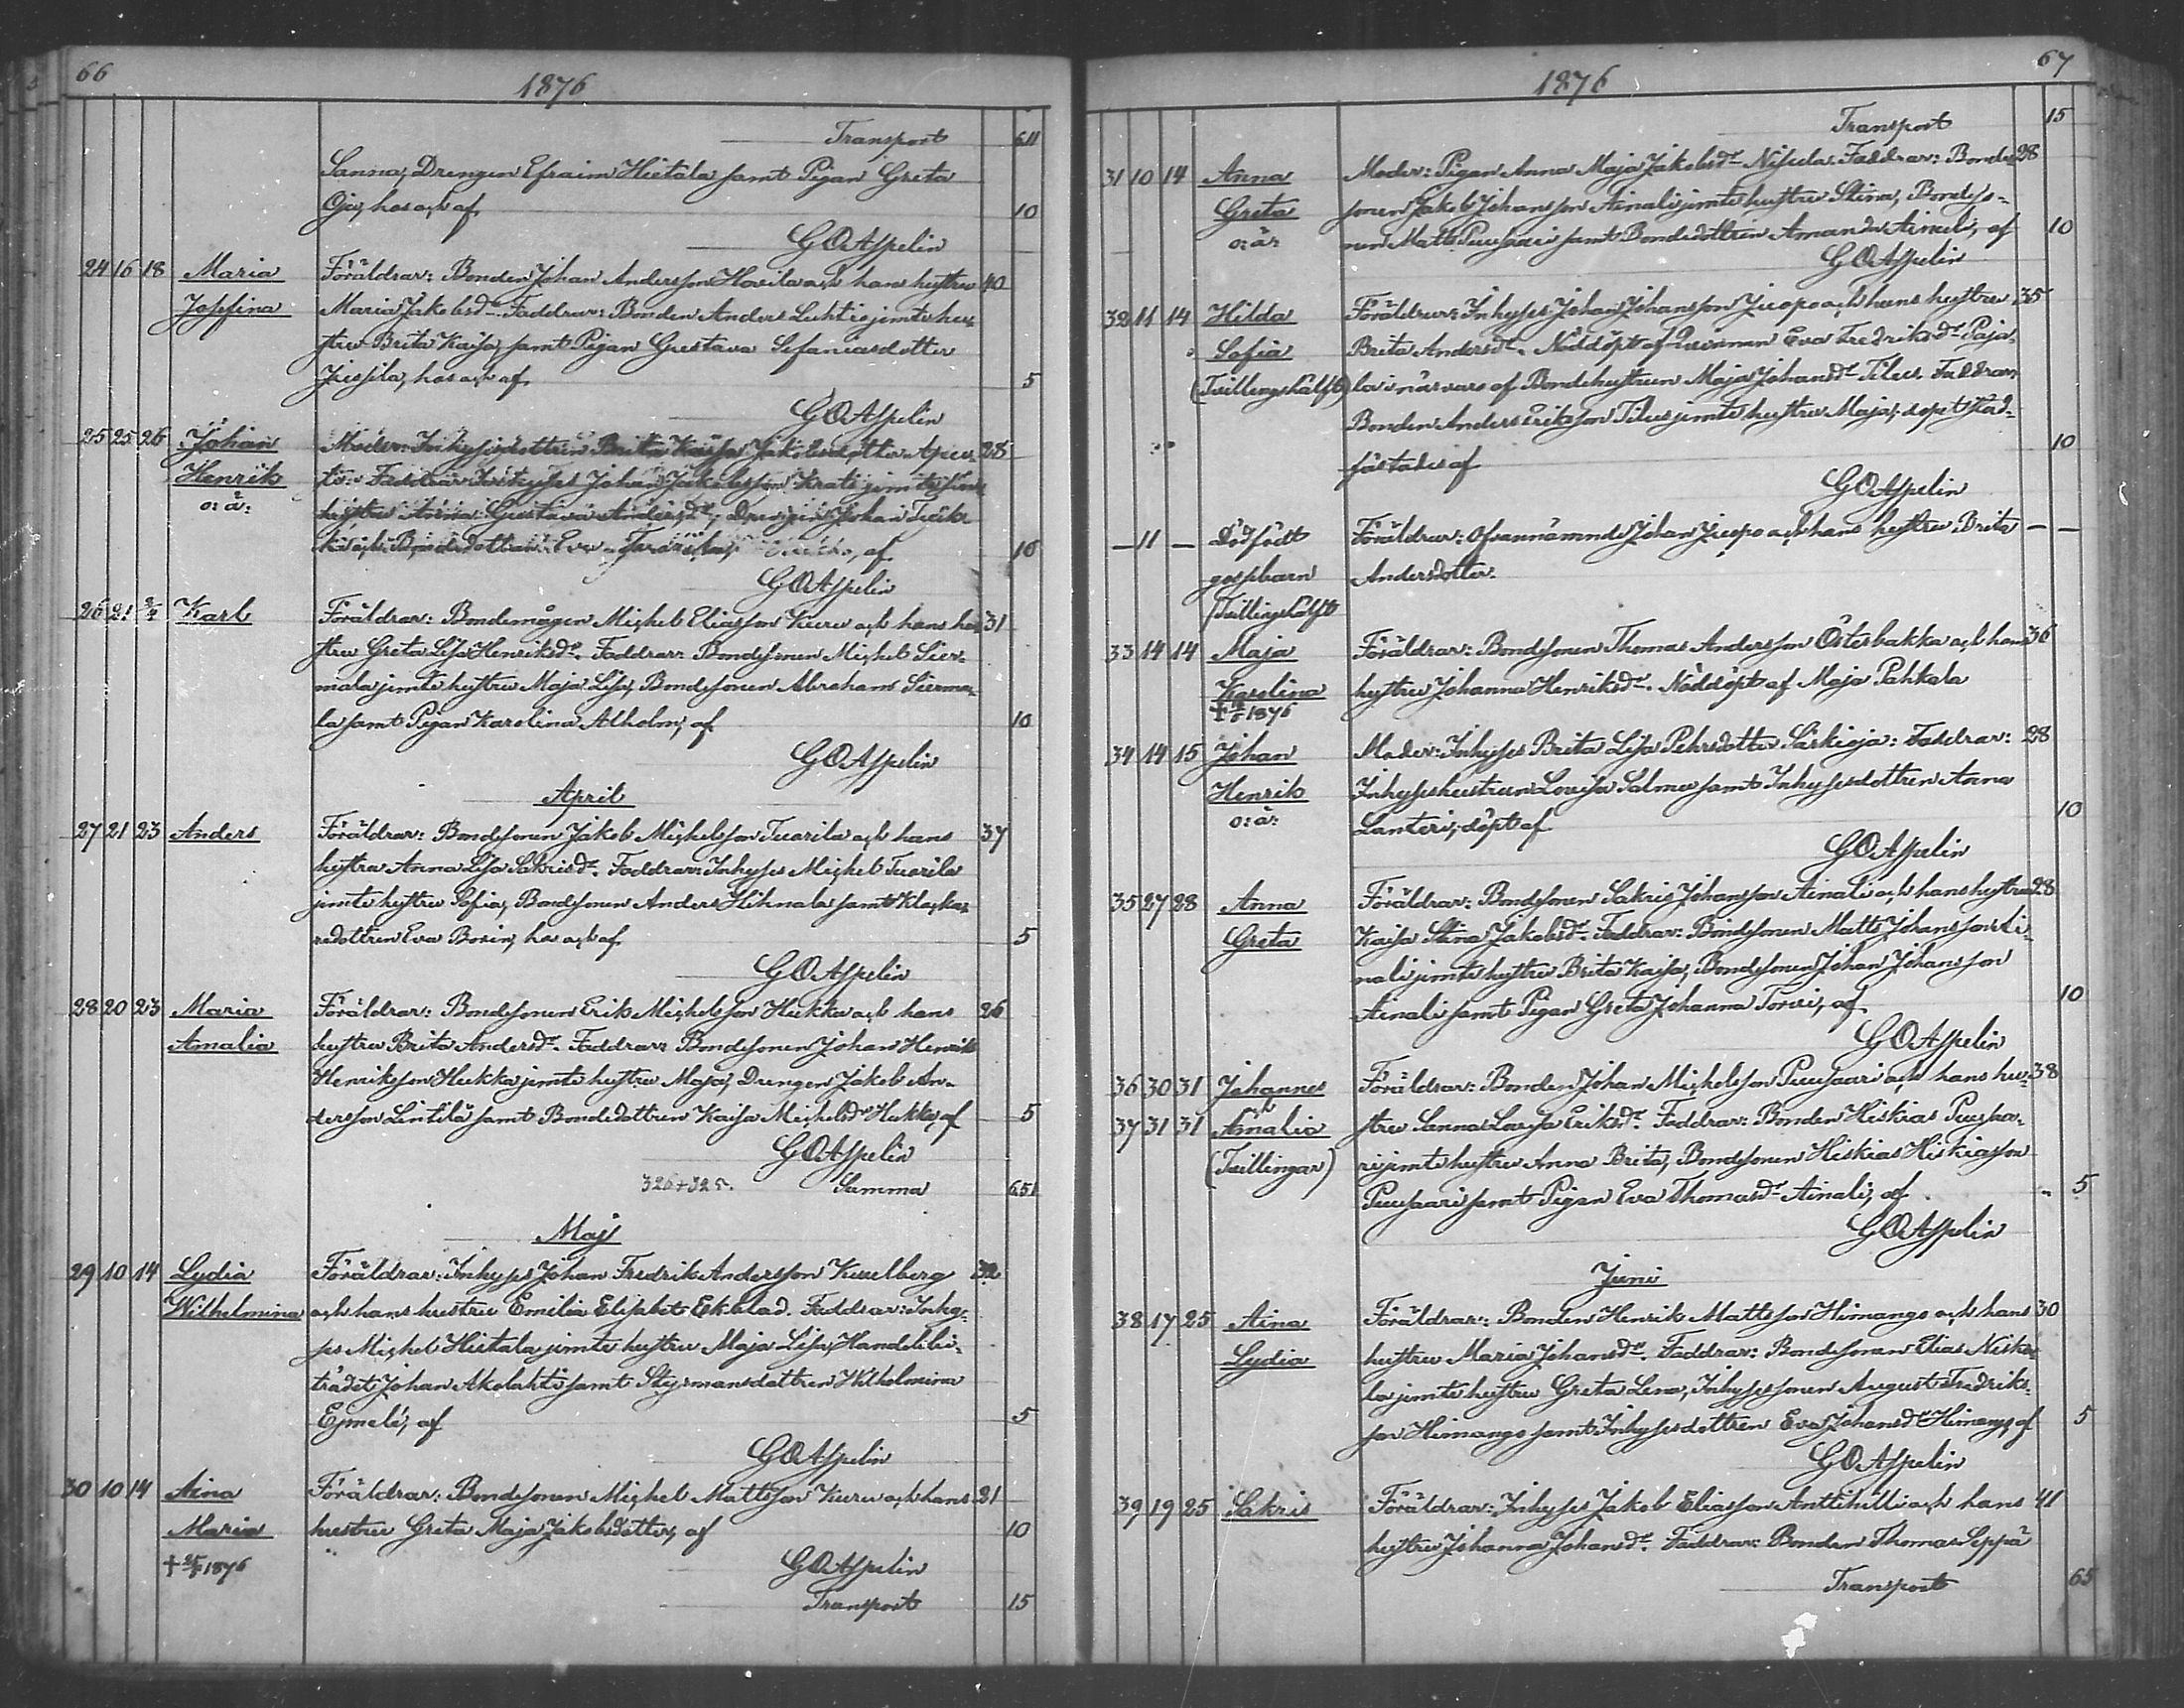 66
1876
Transport 611
Sanna, Drengen Efraim Hietala samt Pigan Greta
Oja, hos och af 10
G O Aspelin
24 16 18 Maria Föräldrar: Bonden Johan Andersson Hovila och hans hustru 40
Josefina Maria Jakobsdr. Faddrar: Bonden Anders Luhtio jemte hu-
stru Brita Kajsa, samt Pigan Gustava Sefaniasdotter
Jussila, hos och af 5
G O Aspelin
25 25 26 Johan Moder: Inhysesdottren Brita Kajsa Jakobsdotter 28
Henrik Faddrar: Inhyses Johan Jakobsson jemte
o: ä: hustru Anna Gustava Andersdr, Drengen Johan
och Bondedottren Eva af 10
G O Aspelin
26 21 2/4 Karl Föräldrar: Bondemågen Michel Eliasson Kuru och hans hu- 31
stru Greta Lisa Henriksdr. Faddrar: Bondesonen Michel Sier-
mala jemte hustru Maja Lisa, Bondesonen Abraham Sierma-
la samt Pigan Karolina Alholm, af 10
G O Aspelin
April
27 21 23 Anders Föräldrar: Bondesonen Jakob Michelsson Tuorila och hans 37
hustru Anna Lisa Sakrisdr. Faddrar: Inhyses Michel Tuorila
jemte hustru Sofia, Bondesonen Anders Hihnala samt Klocka-
redottren Eva Borin, hos och af 5
G O Aspelin
28 20 23 Maria Föräldrar: Bondesonen Erik Michelsson Hukka och hans 26
Amalia hustru Brita Andersdr. Faddrar: Bondesonen Johan Henrik
Henriksson Hukka jemte hustru Maja, Drengen Jakob An-
dersson Lintilä samt Bondedottren Kaisa Michelsdr Hukka, af 5
G O Aspelin
326+325. Summa 651
Maj
29 10 14 Lydia Föräldrar: Inhyses Johan Fredrik Andersson Kusselberg 32
Wilhelmina och hans hustru Emilia Elisabet Ekblad. Faddrar: Inhy-
ses Michel Hietala jemte hustru Maja Lisa, Handelsbi-
trädet Johan Akolahti samt Styrmansdottren Wilhelmina
Ejmelé, af 5
G O Aspelin
30 10 14 Aina Föräldrar: Bondesonen Michel Mattsson Kuru och hans 21
Maria hustru Greta Maja Jakobsdotter, af 10
† 1876
G O Aspelin
Transport 15
67
1876
Transport 15
31 10 14 Anna Moder: Pigan Anna Maja Jakobsdr Nisula. Faddrar: Bonde- 28
Greta sonen Jakob Johansson Ainali jemte hustru Stina, Bondeso-
o: ä: nen Matts Puusaari samt Bondedottren Amanda Ainali, af 10
G O Aspelin
32 11 14 Hilda Föräldrar: Inhyses Johan Johansson Jucopo och hans hustru 35
Sofia Brita Andersdr. Nöddöpt af Qvinnan Eva Fredriksdr Paja-
(Tvillingshälft) la i närvaro af Bondehustrun Maja Johansdr Tilus. Faddrar:
Bonden Anders Eriksson Tilus jemte hustru Maja; dopet stad-
fästades af 10
G O Aspelin
— 11 — Dödfödt Föräldrar: Ofvannämnde Johan Jucopo och hans hustru Brita — —
gossbarn Andersdotter.
Tvillingshälft
33 14 14 Maja Föräldrar: Bondesonen Thomas Andersson Österbakka och hans 36
Karolina hustru Johanna Henriksdr. Nöddöpt af Maja Pahkala
† 1876
34 14 15 Johan Moder: Inhyses Brita Lisa Pehrsdotter Särkioja: Faddrar: 28
Henrik Inhyseshustrun Lovisa Salmu samt Inhysesdottren Anna
o: ä: Lanteri; döpt af 10
G O Aspelin
35 27 28 Anna Föräldrar: Bondesonen Sakris Johansson Ainali och hans hustru 28
Greta Kaisa Stina Jakobsdr. Faddrar: Bondesonen Matts Johansson Ai-
nali jemte hustru Brita Kaisa, Bondesonen Johan Johansson
Ainali samt Pigan Greta Johanna Torvi, af 10
G O Aspelin
36 30 31 Johannes Föräldrar: Bonden Johan Michelsson Puusaari och hans hu- 38
37 31 31 Amalia stru Sanna Lovisa Eriksdr. Faddrar: Bonden Hiskias Puusaa-
(Tvillingar) ri jemte hustru Anna Brita, Bondesonen Hiskias Hiskiasson
Puusaari samt Pigan Eva Thomasdr Ainali, af 5
G O Aspelin
Juni
38 17 25 Aina Föräldrar: Bonden Henrik Mattsson Himango och hans 30
Lydia hustru Maria Johansdr. Faddrar: Bondesonen Elias Niska-
la jemte hustru Greta Lena, Inhysessonen August Fredriks-
son Himango samt Inhysesdottren Eva Johansdr Himango, af 5
G O Aspelin
39 19 25 Sakris Föräldrar: Inhyses Jakob Eliasson Anttihilli och hans 41
hustru Johanna Johansdr. Faddrar: Bonden Thomas Seppä
Transport 65